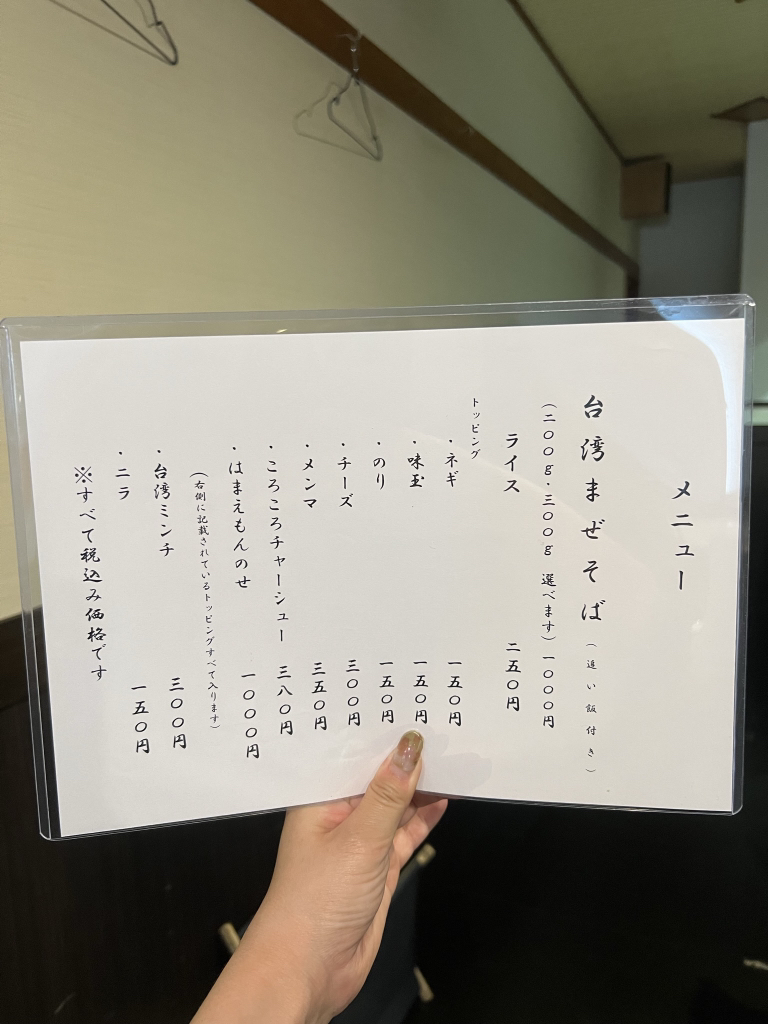 メニュー
台湾まぜそば（追い飯付き）
（二〇〇g・三〇〇g 選べます）一〇〇〇円
ライス 二五〇円
トッピング
・ネギ 一五〇円
・味玉 一五〇円
・のり 一五〇円
・チーズ 三〇〇円
・メンマ 三五〇円
・ころころチャーシュー 三八〇円
・はまえもんのせ 一〇〇〇円
（右側に記載されているトッピングすべて入ります）
・台湾ミンチ 三〇〇円
・ニラ 一五〇円
※すべて税込み価格です